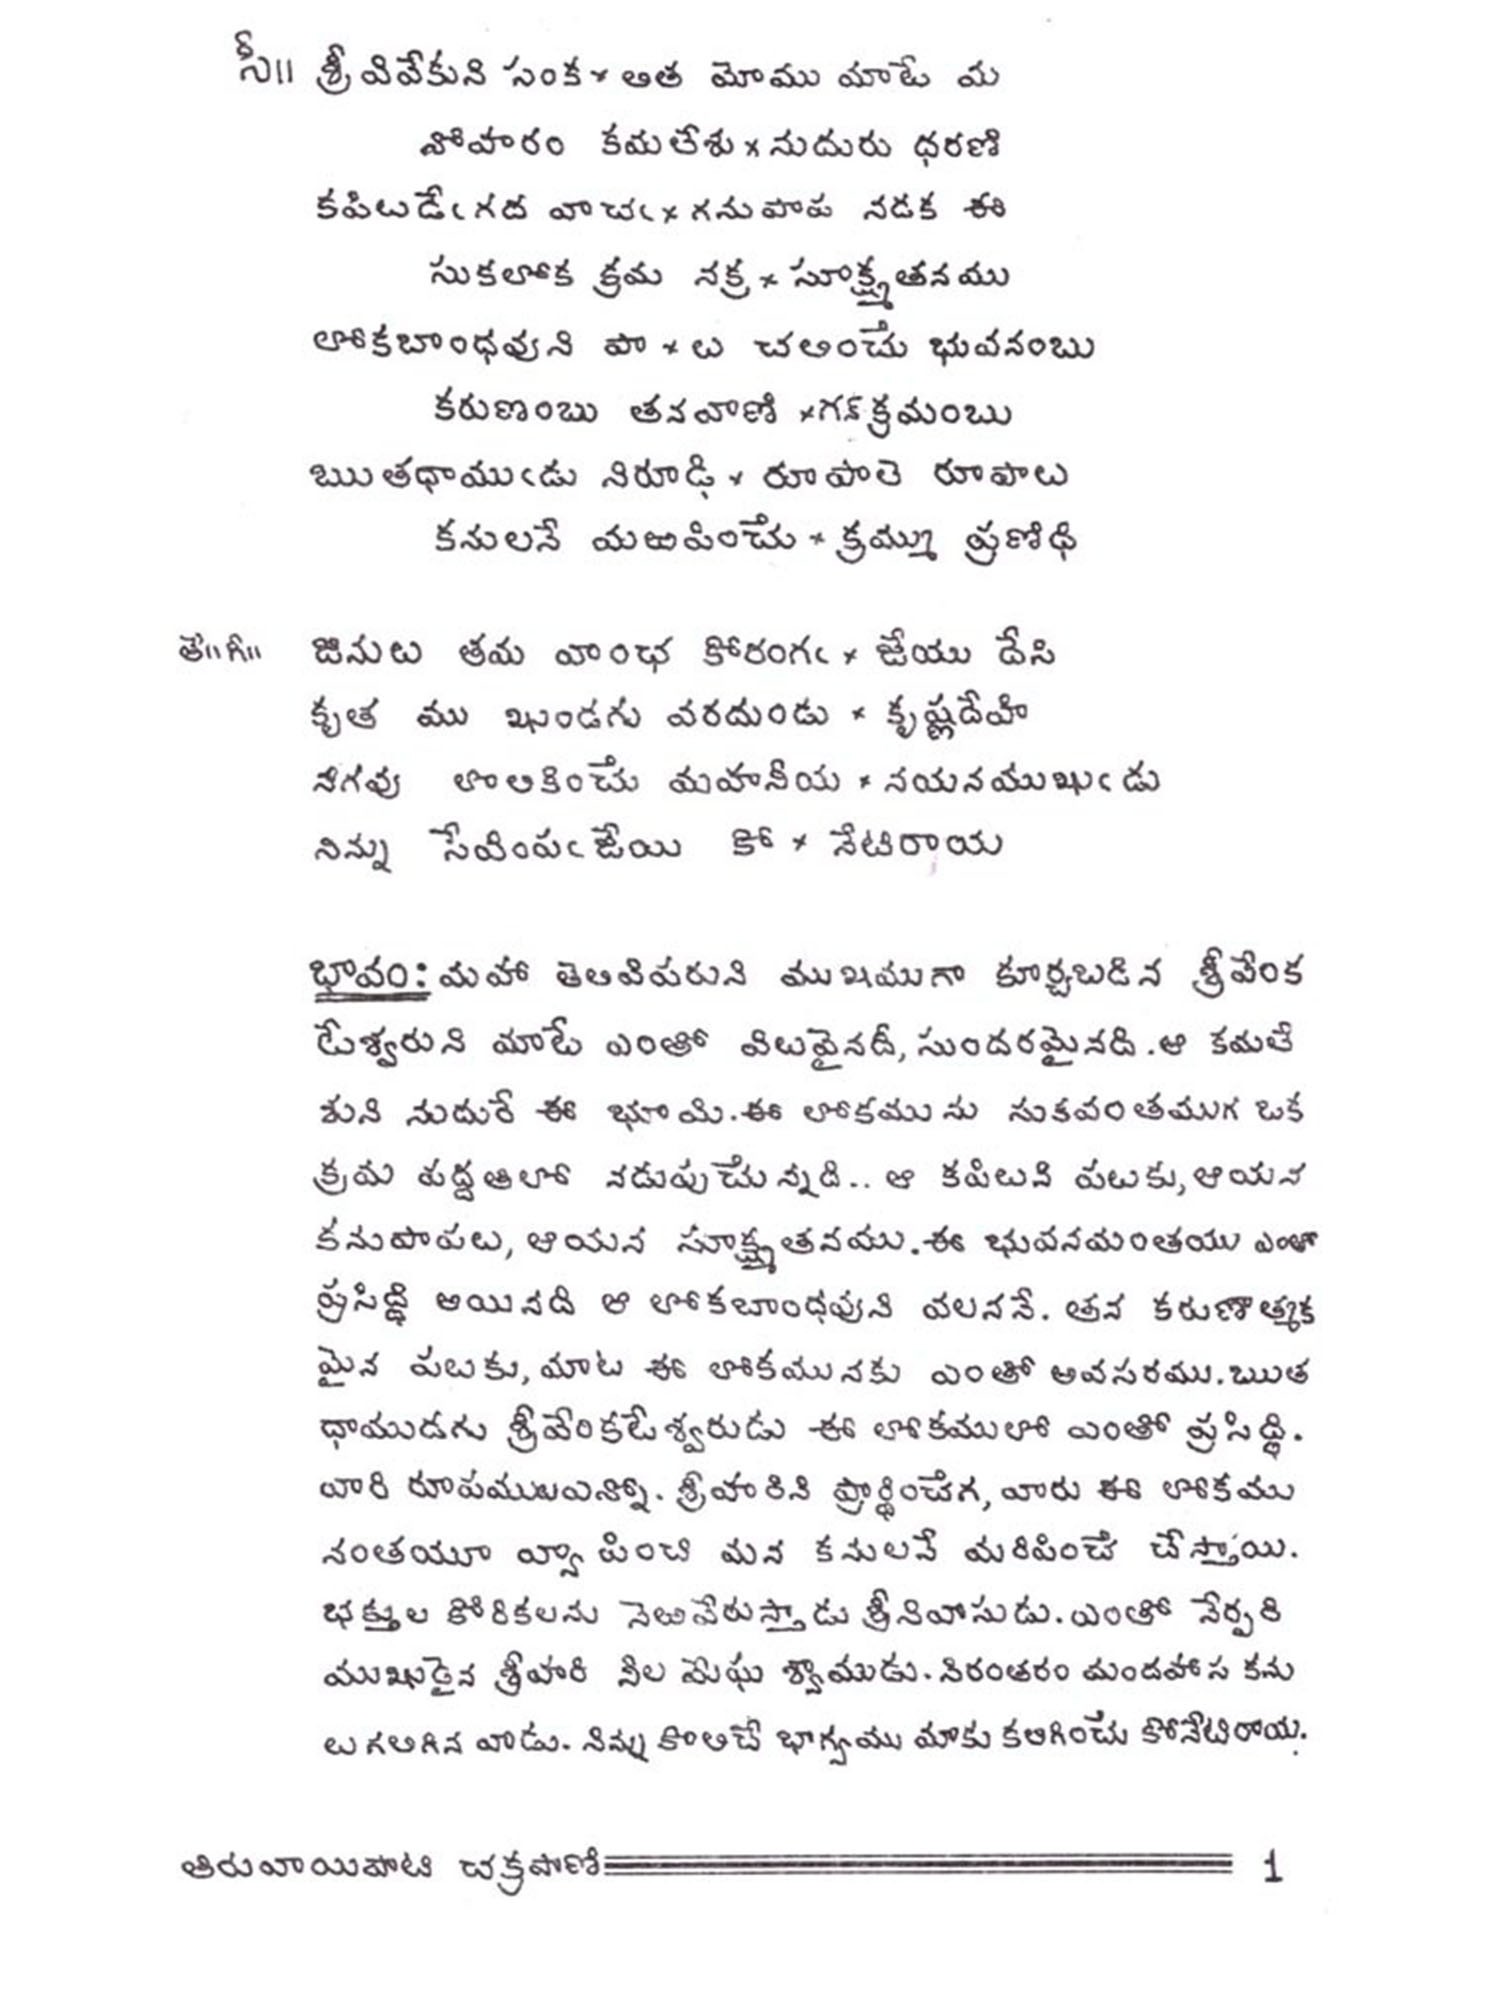 సీ॥ శ్రీ వివేకుని సంక × ఆత మోము మాటే మ
నోహరం కమలేశు × నుదురు ధరణి
కపిలుడేఁగద వాచఁ × గనుపాప నడక ఈ
సుకలోక క్రమ నక్ర × సూక్ష్మతనము
లోకబాంధవుని పా × లు చలించు భువనంబు
కరుణంబు తనవాణి × గన్‌క్రమంబు
ఋతధాముఁడు నిరూఢి × రూపాలె రూపాలు
కనులనే మఱపించు × క్రమ్ము ప్రణిధి
తే॥గీ॥ జినులు తమ వాంఛ కోరంగఁ × జేయు దేసి
కృత ము ఖుండగు వరదుండు × కృష్ణదేహి
నగవు లొలికించు మహనీయ × నయనముఖుఁడు
నిన్ను సేవింపఁ జేయి కో × నేటిరాయ
భావం: మహా తెలివిపరుని ముఖముగా కూర్చబడిన శ్రీవేంక
టేశ్వరుని మాటే ఎంతో విలువైనదీ, సుందరమైనది. ఆ కమలే
శుని నుదురే ఈ భూమి. ఈ లోకమును సుకవంతముగ ఒక
క్రమ పద్ధతిలో నడుపుచున్నది.. ఆ కపిలుని పలుకు, ఆయన
కనుపాపలు, ఆయన సూక్ష్మతనము. ఈ భువనమంతయు ఎంతో
ప్రసిద్ధి అయినది ఆ లోకబాంధవుని వలననే. తన కరుణాత్మక
మైన పలుకు, మాట ఈ లోకమునకు ఎంతో అవసరము. ఋత
ధాముడగు శ్రీవేంకటేశ్వరుడు ఈ లోకములో ఎంతో ప్రసిద్ధి.
వారి రూపములుఎన్నో. శ్రీహరిని ప్రార్థించగ, వారు ఈ లోకము
నంతయూ వ్యాపించి మన కనులనే మరిపించే చేస్తాయి.
భక్తుల కోరికలను నెఱవేరుస్తాడు శ్రీనివాసుడు. ఎంతో నేర్పరి
ముఖుడైన శ్రీహరి నీల మేఘ శ్యాముడు. నిరంతరం మందహాస కను
లుగలిగిన వాడు. నిన్ను కొలిచే భాగ్యము మాకు కలిగించు కోనేటిరాయ.
తిరువాయిపాటి చక్రపాణి 1